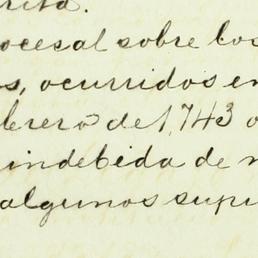 rita.
ocesal sobre los
os, ocurridos en
brero de 1,743 o
indebida de n
algunos supu